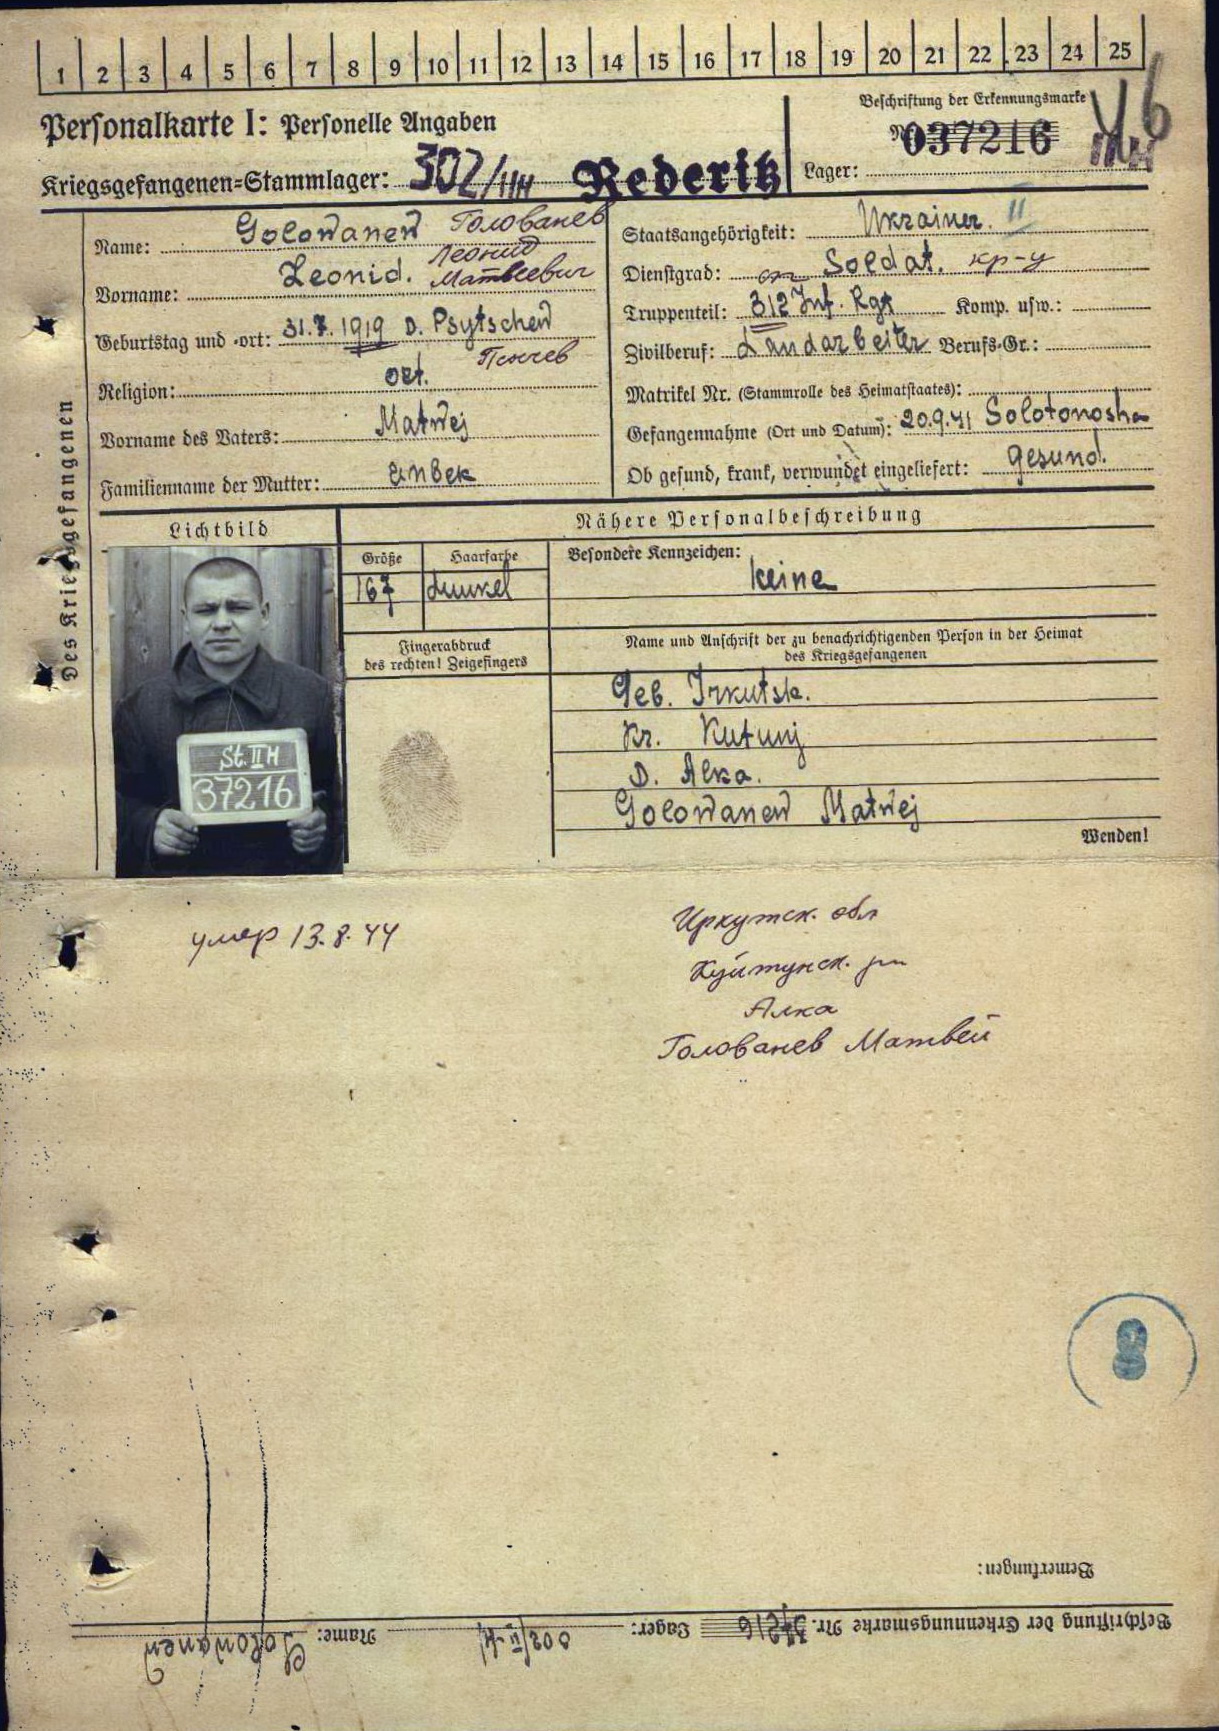 1 2 3 4 5 6 7 8 9 10 11 12 13 14 15 16 17 18 19 20 21 22 23 24 25
Personalkarte I: Personelle Angaben
Beschriftung der Erkennungsmarke
Nr. 037216
Kriegsgefangenen-Stammlager: 302/IIH Rederitz
Lager:
Des Kriegsgefangenen
Name: Golowanew Голованев
Леонид
Vorname: Leonid. Матвеевич
Geburtstag und -ort: 31.7.1919 D. Psytschew
Псычев
Religion: ort.
Vorname des Vaters: Matwej
Familienname der Mutter:
Staatsangehörigkeit: Ukrainer. II
Dienstgrad: Soldat. кр-у
Truppenteil: 312 Inf. Rgt Komp. usw.:
Zivilberuf: Landarbeiter Berufs-Gr.:
Matrikel Nr. (Stammrolle des Heimatstaates):
Gefangennahme (Ort und Datum): 20.9.41 Solotonosha
Ob gesund, krank, verwundet eingeliefert: gesund.
Lichtbild
Nähere Personalbeschreibung
Größe Haarfarbe
167 dunkel
Besondere Kennzeichen:
keine
Fingerabdruck
des rechten! Zeigefingers
Name und Anschrift der zu benachrichtigenden Person in der Heimat
des Kriegsgefangenen
Geb. Irkutsk.
Kr. Kutunj
D. Alka.
Golowanew Matwej
Wenden!
St. II H
37216
умер 13.8.44
Иркутск. обл
Куйтунск. рн
Алка
Голованев Матвей
8
Bemerkungen:
Beschriftung der Erkennungsmarke Nr. 37216 Lager: 302/II-H Name: Golowanew